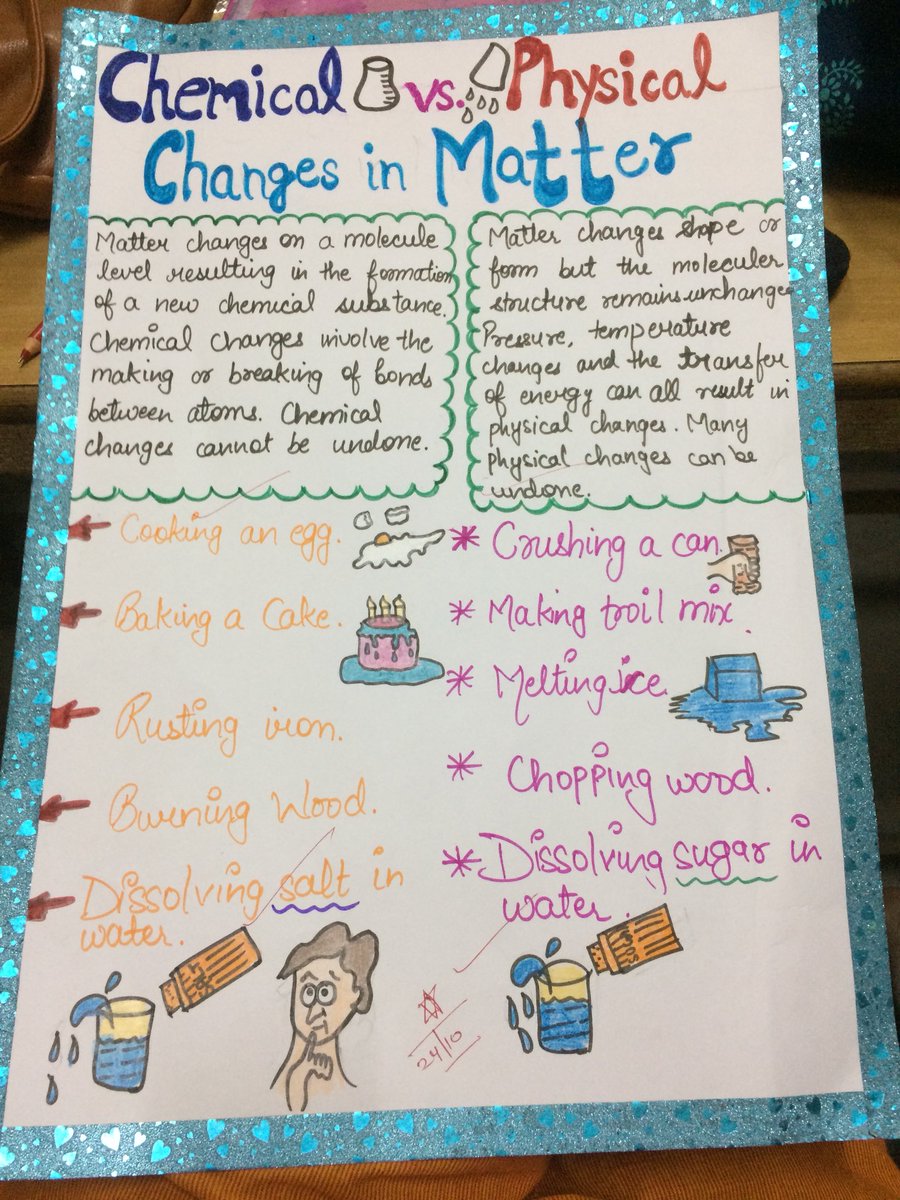 Chemical vs. Physical
Changes in Matter
Matter changes on a molecule
level resulting in the formation
of a new chemical substance.
Chemical changes involve the
making or breaking of bonds
between atoms. Chemical
changes cannot be undone.
Matter changes shape or
form but the moleculer
structure remains unchange
Pressure, temperature
changes and the transfer
of energy can all result in
physical changes. Many
physical changes can be
undone.
Cooking an egg.
Baking a Cake.
Rusting iron.
Burning Wood.
Dissolving salt in
water.
* Crushing a can.
* Making troil mix.
* Melting ice.
* Chopping wood.
* Dissolving sugar in
water.
24/10